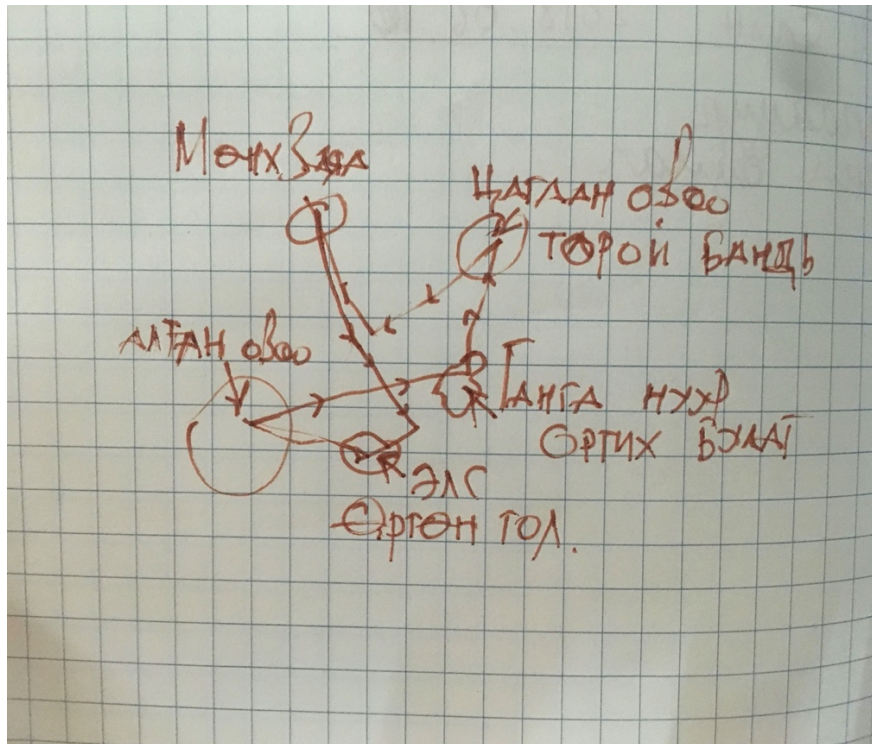 МөнхЗаяа
ЦАГААН ОВОО
ТОРОЙ БАНДЬ
АЛТАН ОВОО
ГАНГА НУУР
ОРТИХ БУЛАГ
ЭЛС
ӨРГӨН ГОЛ.